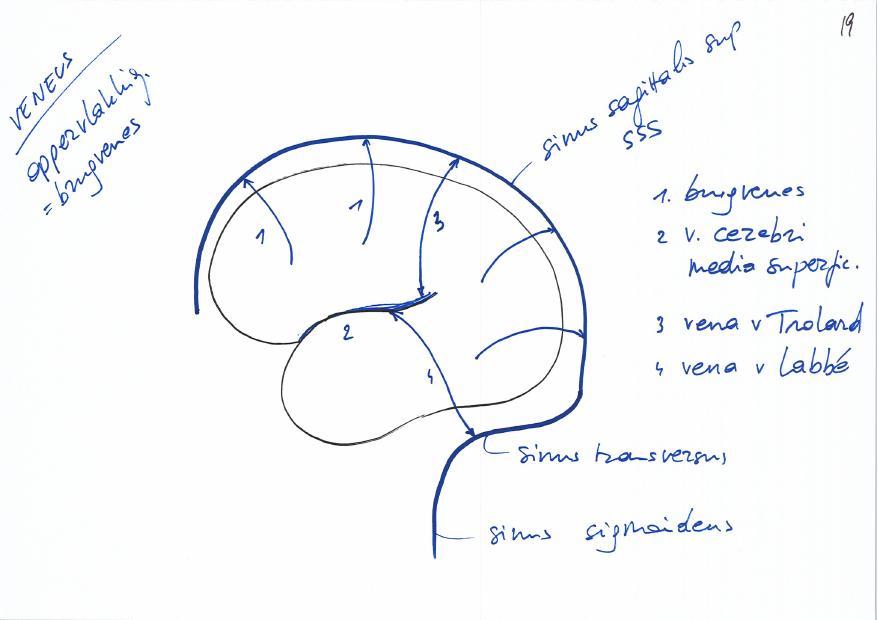 19
VENEUS
oppervlakkig.
= brugvenes
sinus sagittalis sup
SSS
1. brugvenes
2 v. cerebri
media superfic.
3 vena v Trolard
4 vena v Labbé
1
1
3
2
4
sinus transversus
sinus sigmoideus